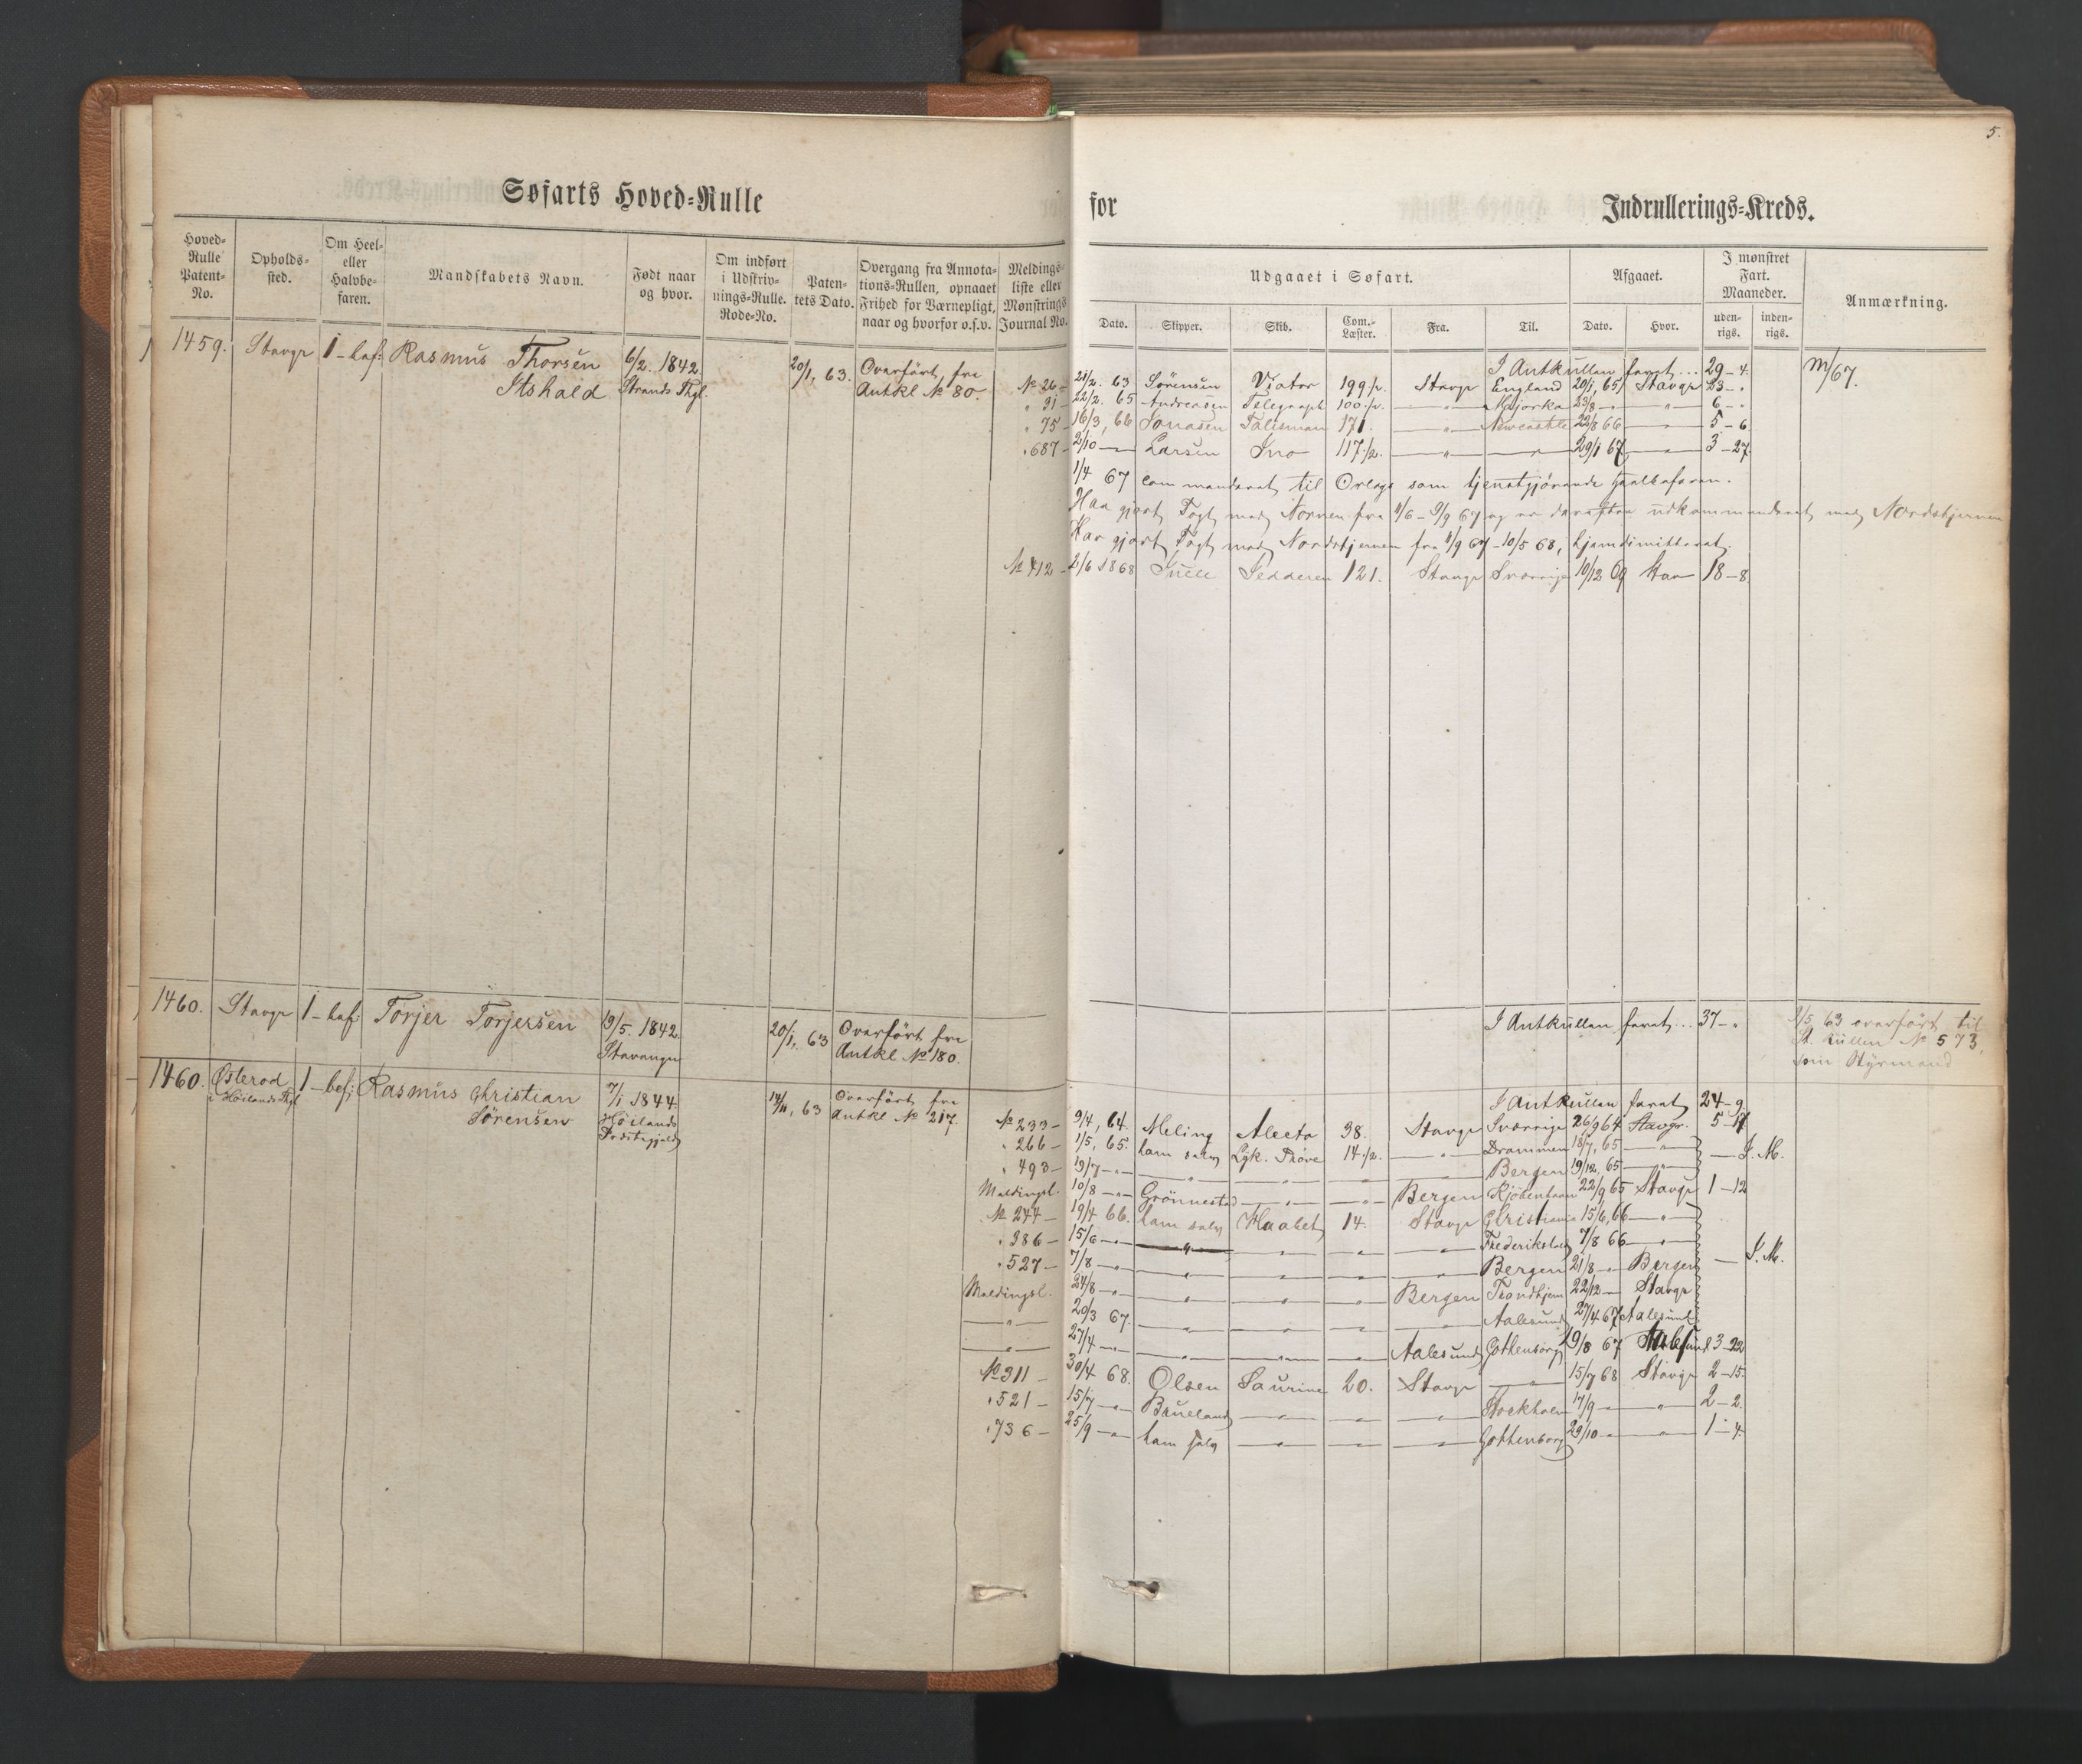 5.
Søfarts Hoved-Rulle
for Indrullerings-Kreds.
Hoved-Rulle Patent-No.
Opholds-sted.
Om Heel- eller Halvbe-faren.
Mandskabets Navn.
Født naar og hvor.
Om indført i Udskriv-nings-Rulle. Rode-No.
Paten-tets Dato.
Overgang fra Annota-tions-Rullen, opnaaet Frihed for Værnepligt, naar og hvorfor o.s.v.
Meldings-liste eller Mønstrings Journal No.
Udgaaet i Søfart.
Afgaaet.
I mønstret Fart. Maaneder.
Anmærkning.
Dato. Skipper. Skib. Com.-Læster. Fra. Til. Dato. Hvor. uden-rigs. inden-rigs.
1459. Stavgr 1 - bef: Rasmus Thorsen 6/2. 1842. 20/1, 63. Overført fra
Strands Thgl. Antkl № 80.
I Antkullen faret ... 29-4. M/67.
№ 26 - 21/2. 63 Sørensen Viator 199 1/2. Stavgr England 20/1, 65 Stavgr 23 - "
" 31 - 22/2. 65 Andreasen Telegraph 100 1/2. - " - 23/8 - " - " 6 - "
" 75 - 16/3, 66 Jonasen Talisman 171. - " - Newcastle 22/8 66 - " - 5 - 6
" 687 - 2/10 - " - Larsen Ino 117 1/2. - " - - " - 29/1 67 - " - 3 - 27
1/4 67 commanderet til Orlogs som tjenstgjørende
Har gjort Togt med Nornen fra - 9/9 67 og er derefter udkommanderet med Nordstjernen
Har gjort Togt med Nordstjernen fra 11/9 67 - 10/5 68, hjemdimitteret.
№ 412 - 2/6 1868 Juell 121. Stavgr Sverrige 10/12 69 Stav 18 - 8
1460. Stavgr 1 - bef: Torjer Torjersen 19/5. 1842. 20/1, 63 Overført fra
Stavanger Antkl № 180.
I Antkullen faret ... 37 - " 2/5 63 overført til
St. Rullen № 573,
som Styrmand
1460. Østerod 1 - bef: Rasmus Christian 7/1 1844. 14/11, 63 Overført fra
i Høilands Thgl Sørensen Høilands Antkl № 217.
Præstegjeld
I Antkullen faret 24 - 9
№ 233 - 9/4, 64. Meling Alecto 38. Stavgr Sverrige 26/9 64 Stavgr. 5 - 17
" 266 - 1/5, 65. ham selv 14 1/2. - " - Drammen 18/7, 65 - " - - I. M.
" 493 - 19/7 - " - - " - - " - - " - - " - Bergen 19/12, 65 - " -
Meldingsl. 10/8 - " - Grønnestad - " - - " - Bergen Kjøbenhavn 22/9, 65 Stavgr 1 - 12
№ 244 - 19/4 66. ham selv Haabet 14. Stavgr Christiania 15/6, 66 - " -
" 386 - 15/6 - " - - " - - " - - " - - " - Frederikstad 7/8 66 - " -
" 527 - 7/8 - " - - " - - " - - " - - " - Bergen 21/8 - " - Bergen - I. M.
Meldingsl. 24/8 - " - - " - - " - - " - Bergen Trondhjem 22/12 - Stavgr
- " - 20/3 67. - " - - " - - " - - " - Aalesund 27/4 67 Aalesund
- " - 27/4 - " - - " - - " - - " - Aalesund Gothenborg 19/8 67 3 - 22
№ 311 - 30/4 68. Olsen Laurine 20. Stavgr - " - 15/7 68 Stavgr 2 - 15.
" 521 - 15/7 - " - Brueland - " - - " - - " - Stockholm 17/9 - " - " - 2 - 2.
" 736 - 25/9 - " - ham selv - " - - " - - " - Gothenborg 29/10 - " - " - 1 - 4.